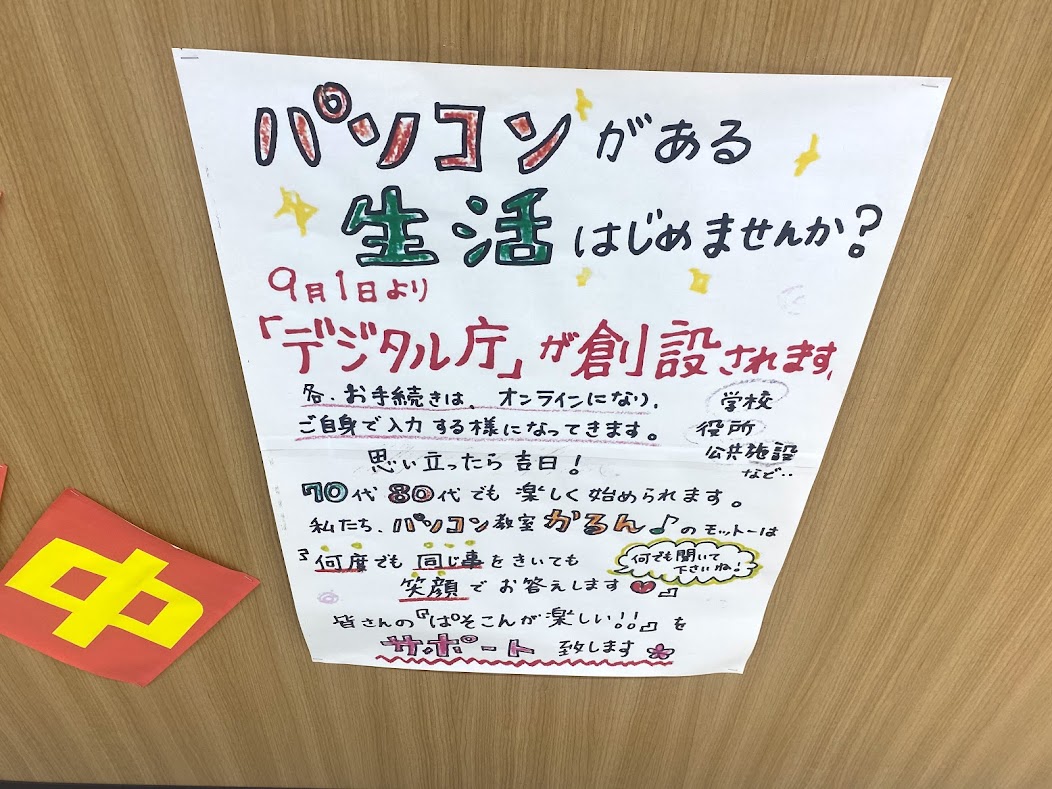 パソコンがある
生活はじめませんか?
9月1日より
「デジタル庁」が創設されます.
各.お手続きは、オンラインになり、
ご自身で入力する様になってきます。
学校
役所
公共施設
など‥
思い立ったら吉日!
70代80代でも楽しく始められます。
私たち、パソコン教室かるん♪のモットーは
『何度でも同じ事をきいても
笑顔でお答えします♥』
何でも聞いて
下さいね!
皆さんの『ぱそこんが楽しい!!』を
サポート致します
中